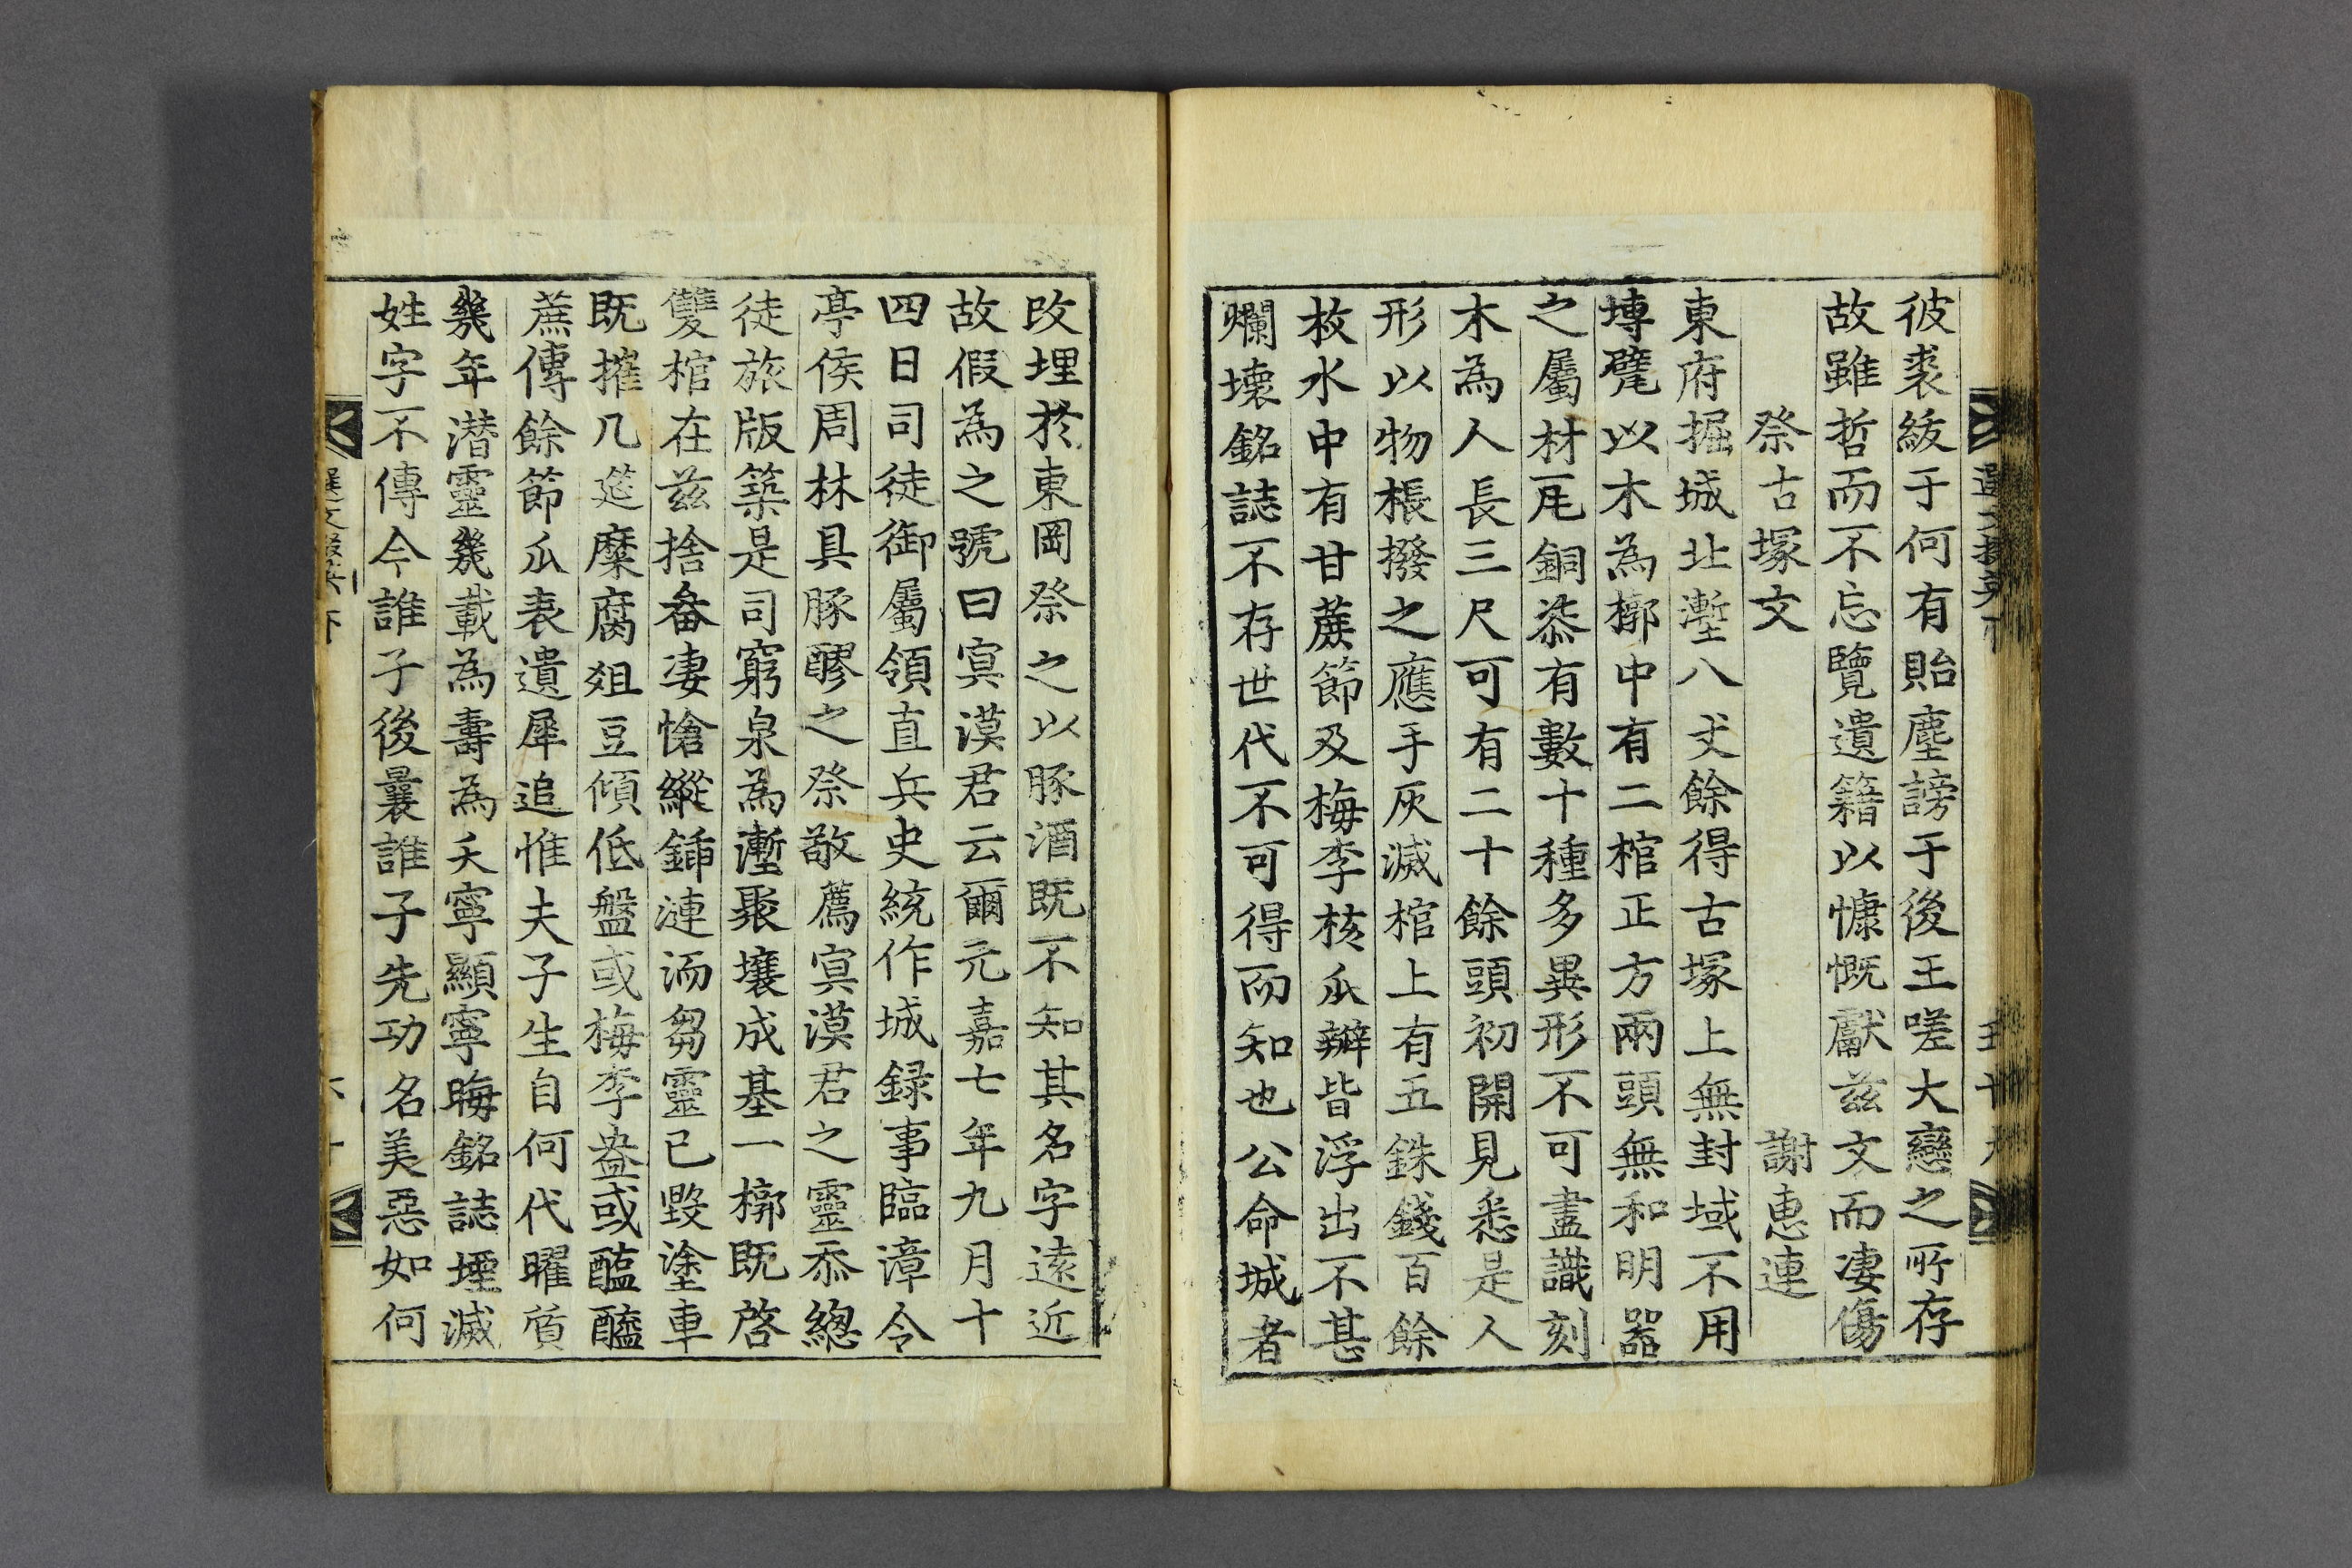 彼裘紱于何有貽塵謗于後王嗟大戀之所存
故雖哲而不忘覽遺籍以慷慨獻茲文而凄傷
祭古塚文 謝惠連
東府掘城北壍八丈餘得古塚上無封域不用
塼甓以木為槨中有二棺正方兩頭無和明器
之屬材瓦銅漆有數十種多異形不可盡識刻
木為人長三尺可有二十餘頭初開見悉是人
形以物棖撥之應手灰滅棺上有五銖錢百餘
枚水中有甘蔗節及梅李核瓜瓣皆浮出不甚
爛壞銘誌不存世代不可得而知也公命城者
改埋於東岡祭之以豚酒既不知其名字遠近
故假為之號曰冥漠君云爾元嘉七年九月十
四日司徒御屬領直兵史統作城録事臨漳令
亭侯周林具豚醪之祭敬薦冥漠君之靈忝總
徒旅版築是司窮泉為壍聚壤成基一槨既啓
雙棺在茲捨畚凄愴縱鍤漣洏芻靈已毀塗車
既摧几筵糜腐俎豆傾低盤或梅李盎或醢醯
蔗傳餘節瓜表遺犀追惟夫子生自何代曜質
幾年潛靈幾載為壽為夭寧顯寧晦銘誌堙滅
姓字不傳今誰子後曩誰子先功名美惡如何